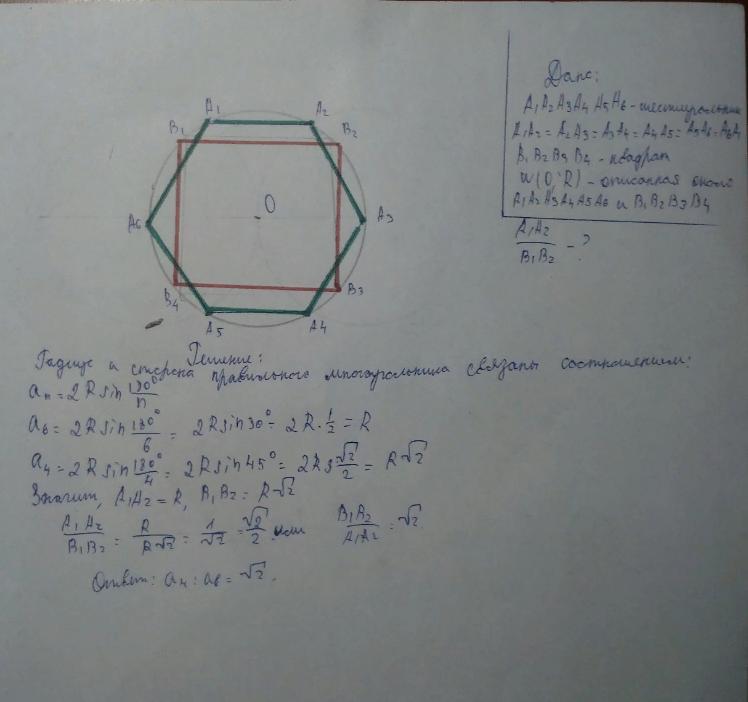 A₁ A₂
B₁ B₂
A₆ O A₃
B₄ B₃
A₅ A₄
Дано:
A₁A₂A₃A₄A₅A₆ - шестиугольник
A₁A₂ = A₂A₃ = A₃A₄ = A₄A₅ = A₅A₆ = A₆A₁
B₁B₂B₃B₄ - квадрат
w(O; R) - описанная около
A₁A₂A₃A₄A₅A₆ и B₁B₂B₃B₄
A₁A₂/B₁B₂ - ?
Решение:
Радиус и сторона правильного многоугольника связаны соотношением:
aₙ = 2R sin 180°/n
a₆ = 2R sin 180°/6 = 2R sin 30° = 2R · 1/2 = R
a₄ = 2R sin 180°/4 = 2R sin 45° = 2R √2/2 = R√2
Значит, A₁A₂ = R, B₁B₂ = R√2
A₁A₂/B₁B₂ = R/R√2 = 1/√2 = √2/2 или B₁B₂/A₁A₂ = √2.
Ответ: a₄ : a₆ = √2.